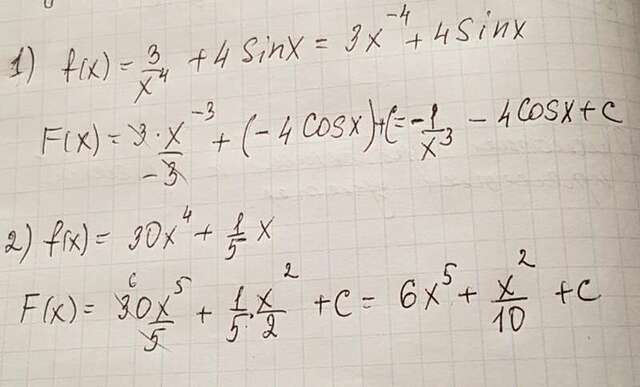 1) f(x) = 3/x⁴ + 4 sinx = 3x⁻⁴ + 4 sinx
F(x) = 3 · x⁻³/-3 + (-4 cosx) + C = -1/x³ - 4 cosx + C
2) f(x) = 30x⁴ + 1/5 x
F(x) = 30x⁵/5 + 1/5 · x²/2 + C = 6x⁵ + x²/10 + C